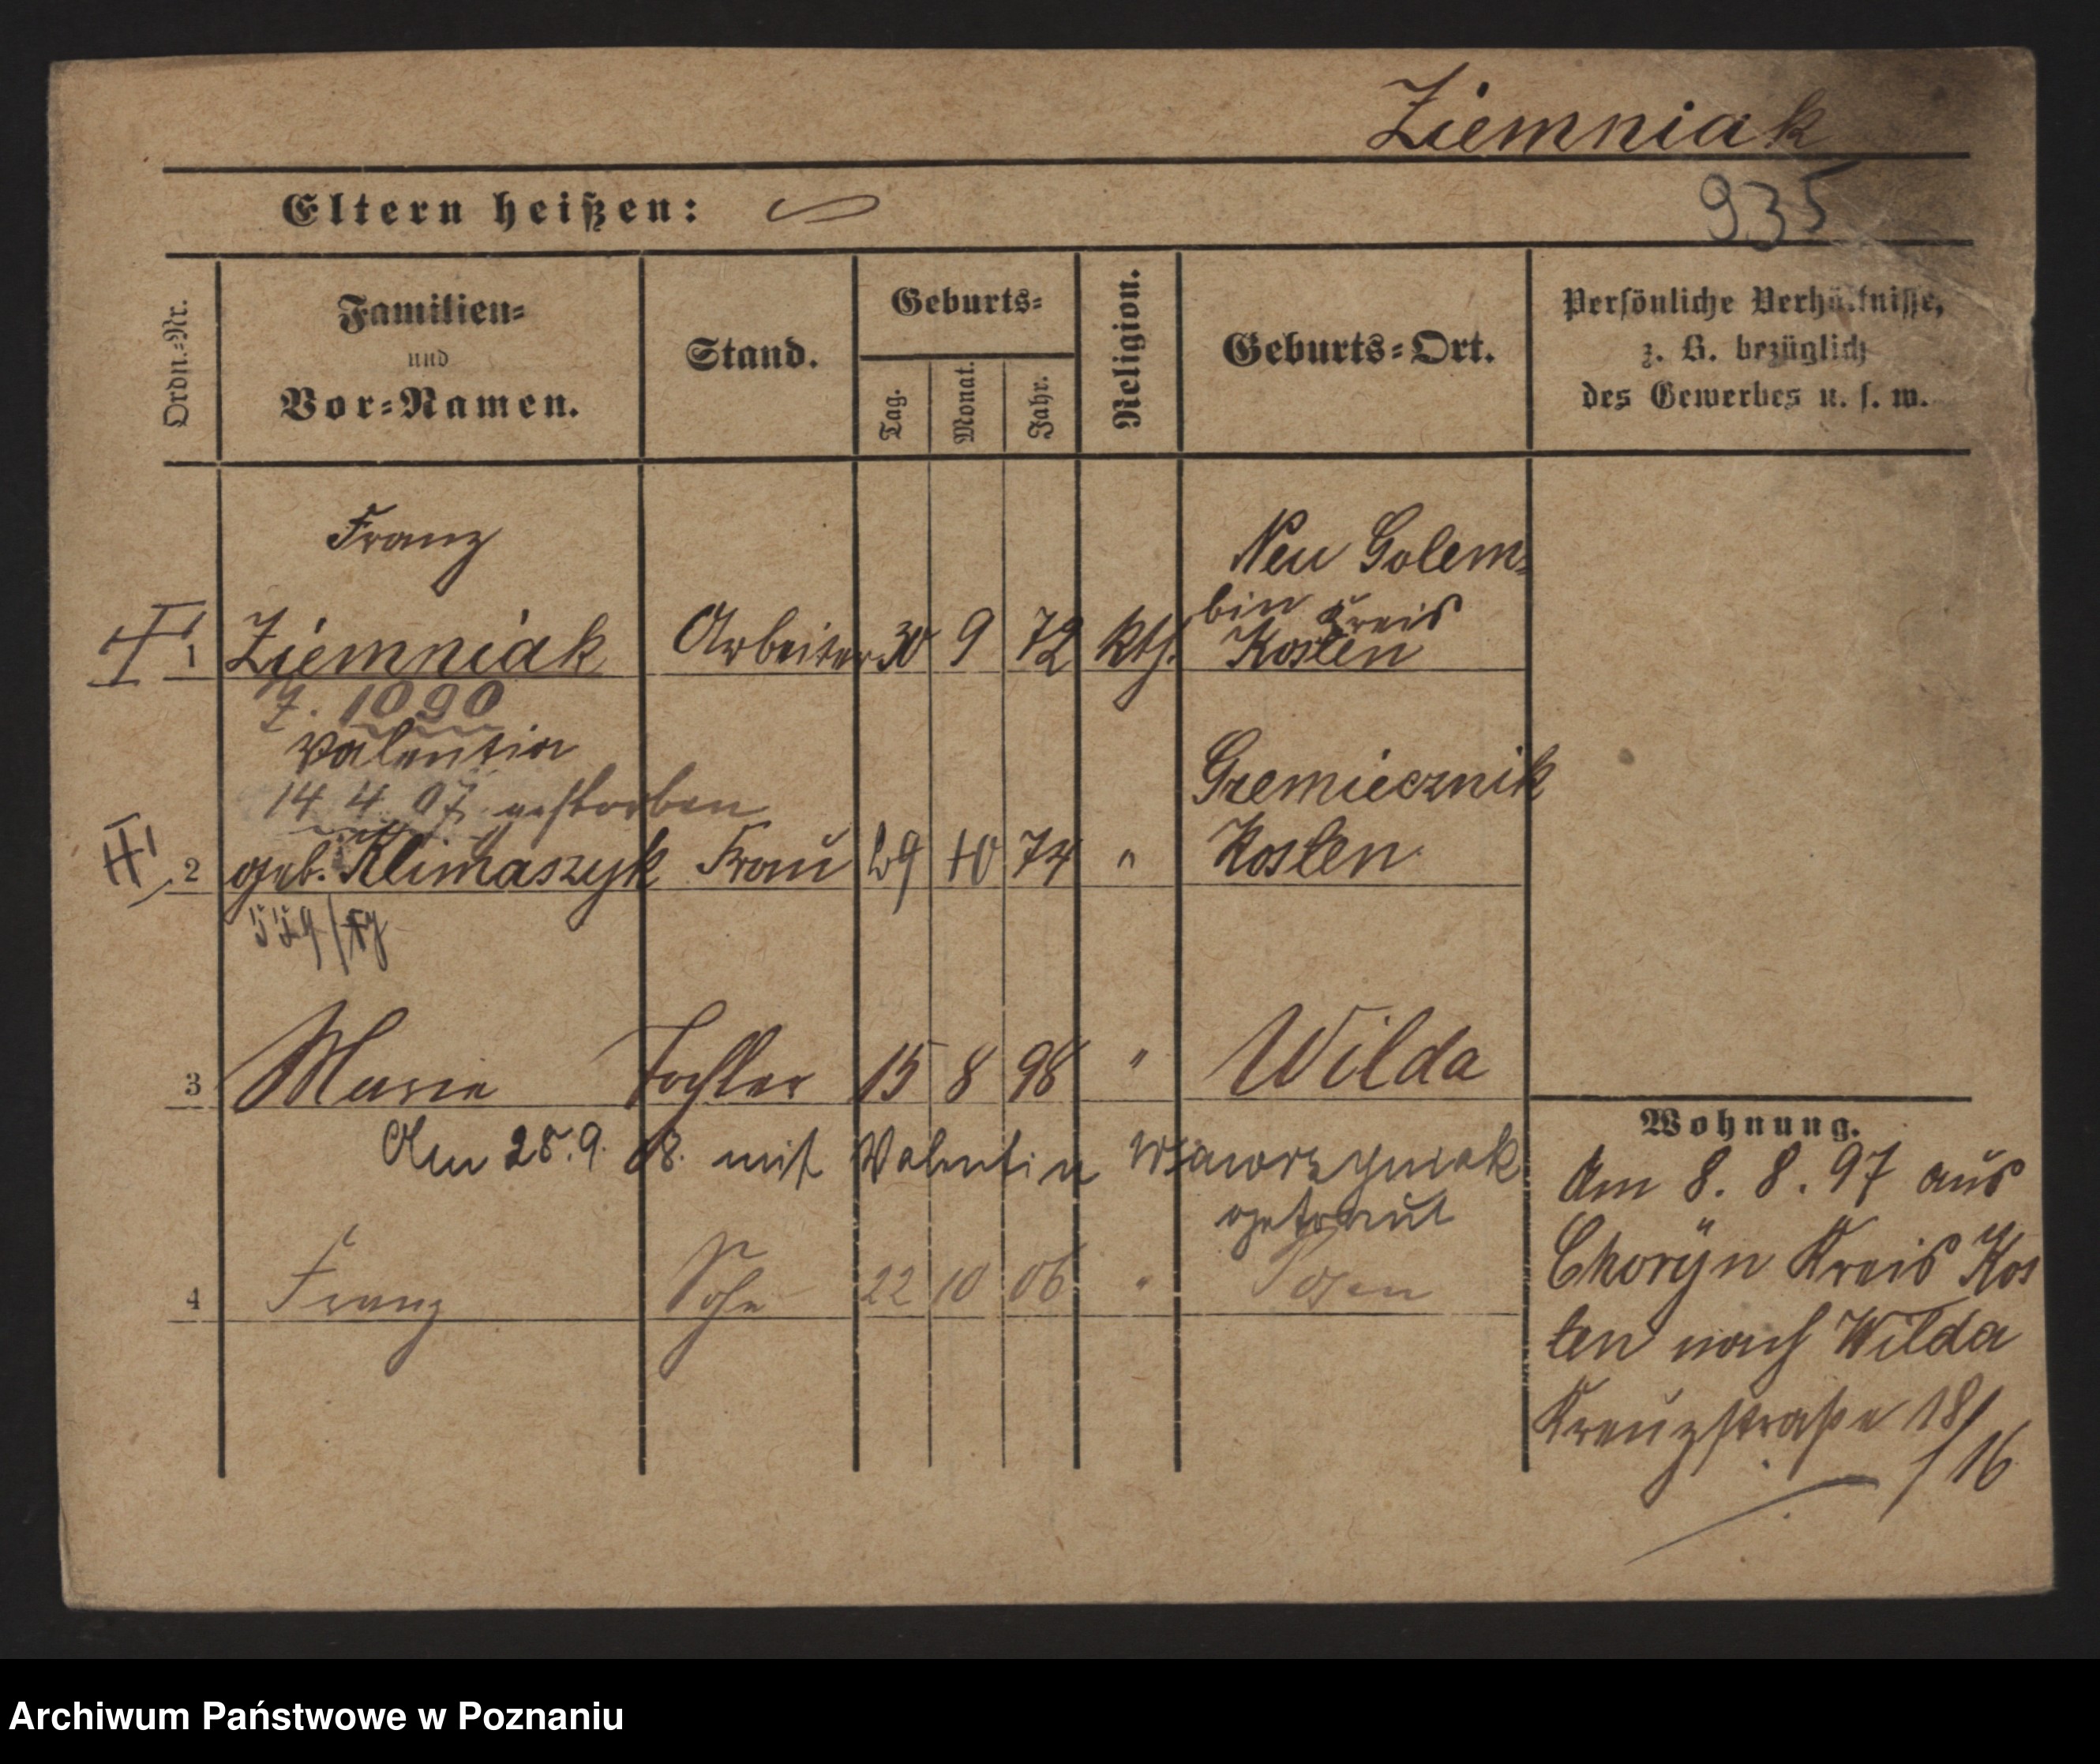 Ziemniak
935
Eltern heißen:
Ordn.-Nr.
Familien-
und
Vor-Namen.
Stand.
Geburts-
Tag.
Monat.
Jahr.
Religion.
Geburts-Ort.
Persönliche Verhältnisse,
z. B. bezüglich
des Gewerbes u. s. w.
Franz
1 Ziemniak Arbeiter 30 9 72 kth.
Neu Golem-
bin Kreis
Kosten
Z. 1090
Valentin
14 4. 07. gestorben
2 geb. Klimaszyk Frau 29 10 74 "
Gremiecznik
Kosten
3 Marie Tochter 15 8 98 " Wilda
Am 28.9. 08. mit Valentin Wawrzyniak
getraut
4 Franz Sohn 22 10 06 " Posen
Wohnung.
Am 8. 8. 97 aus
Choryn Kreis Kos
ten nach Wilda
Kreuzstraße 18/
/16
Archiwum Państwowe w Poznaniu